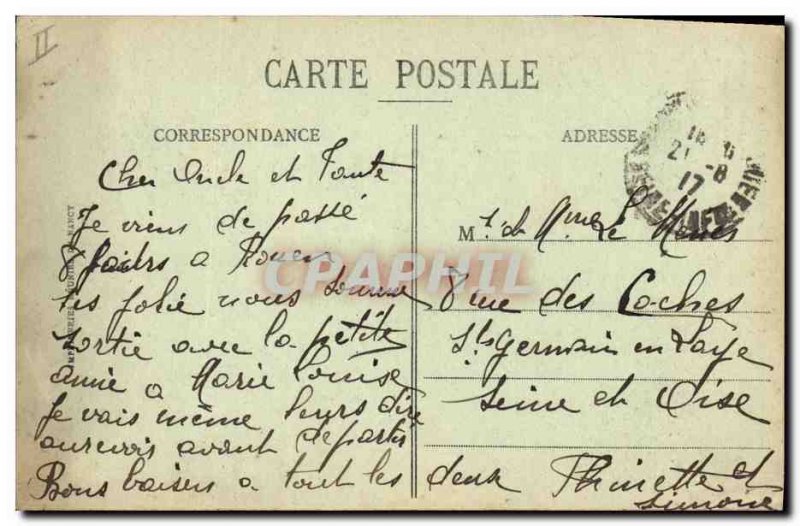 II
CARTE POSTALE
CORRESPONDANCE
ADRESSE
21 -8
17
Cher Oncle et Tante
Je viens de passé
8 joiurs a Rouen
tes jolie nous somme
sortie avec la petite
amie a Marie Louise
Je vais même leurs dire
aurevoir avant de partir
Bons baisers a tout les deux
Phinette et
Simone
M. r. et Mme Le
8 rue des Coches
St Germain en Laye
Seine et Oise
NANCY
CPAPHIL